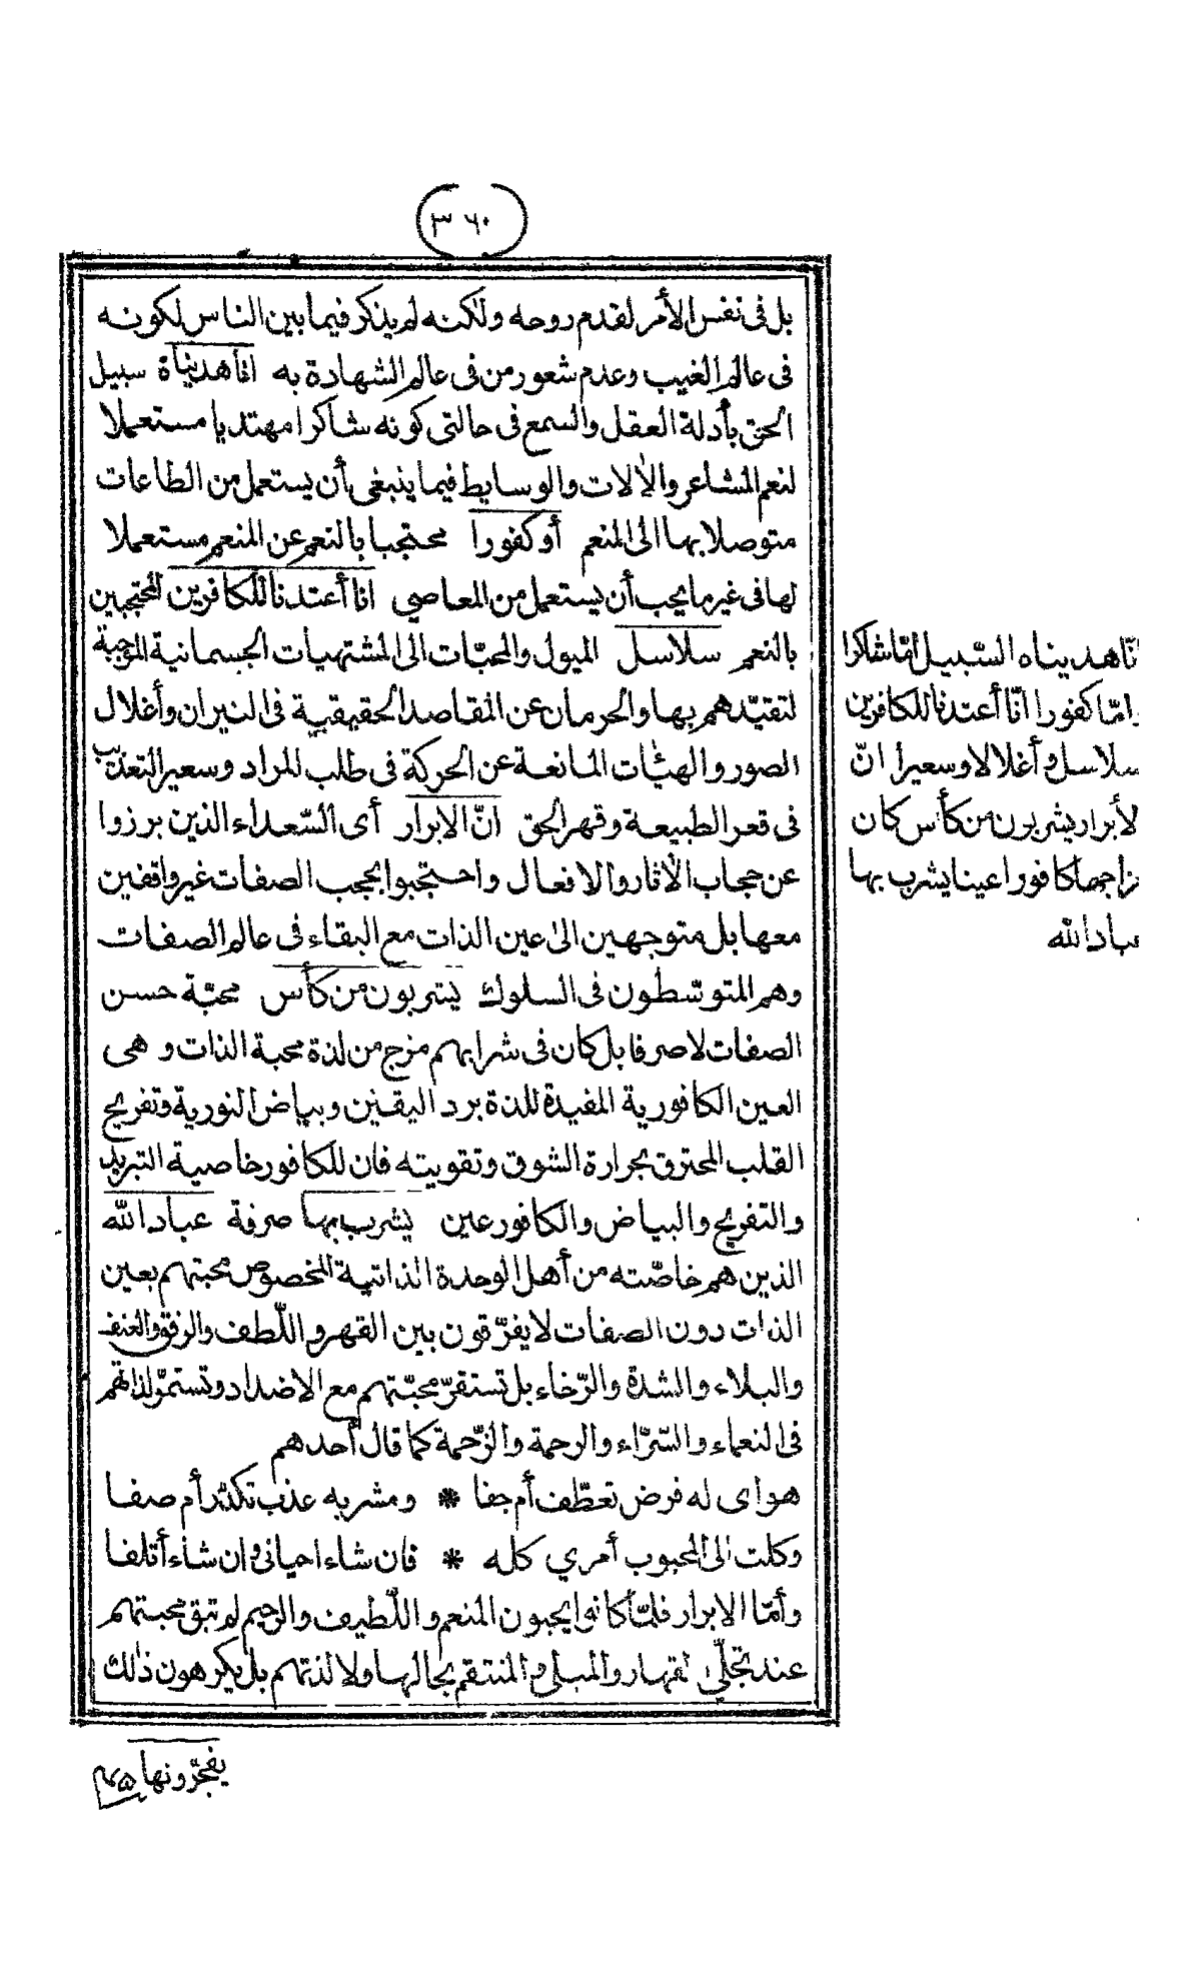 (٣٦٠)
بل فى نفس الأمر لقدم روحه ولكنه لم يذكر فيما بين الناس لكونه
فى عالم الغيب وعدم شعور من فى عالم الشهادة به انا هديناه سبيل
الحق بأدلة العقل والسمع فى حالتى كونه شاكرا مهتديا مستعملا
لنعم المشاعر والآلات والوسايط فيما ينبغى أن يستعمل من الطاعات
متوصلا بها الى المنعم أو كفورا محتجبا بالنعم عن المنعم مستعملا
لها فى غير ما يجب أن يستعمل من المعاصى انا أعتدنا للكافرين المحتجبين
بالنعم سلاسل الميول والمحبّات الى المشتهيات الجسمانية الموجبة
لتقيّدهم بها والحرمان عن المقاصد الحقيقية فى النيران وأغلال
الصور والهيئات المانعة عن الحركة فى طلب المراد وسعير التعذيب
فى قعر الطبيعة وقهر الحق انّ الابرار أى السّعداء الذين برزوا
عن حجاب الآثار والافعال واحتجبوا بحجب الصفات غير واقفين
معها بل متوجهين الى عين الذات مع البقاء فى عالم الصفات
وهم المتوسّطون فى السلوك يشربون من كأس محبّة حسن
الصفات لا صرفا بل كان فى شرابهم مزج من لذة محبة الذات وهى
العين الكافورية المفيدة للذة برد اليقين وبياض النورية وتفريح
القلب المحترق بحرارة الشوق وتقويته فان للكافور خاصية التبريد
والتفريح والبياض والكافور عين يشرب بها صرفة عباد الله
الذين هم خاصّته من أهل الوحدة الذاتية المخصوص محبتهم بعين
الذات دون الصفات لا يفرّقون بين القهر واللّطف والرفق والعنف
والبلاء والشدة والرّخاء بل تستقرّ محبّتهم مع الاضداد وتستمرّ لذاتهم
فى النعماء والسّرّاء والرحمة والزّحمة كما قال أحدهم
هواى له فرض تعطّف أم جفا * ومشربه عذب تكدّر أم صفا
وكلت الى المحبوب أمري كله * فان شاء احيانى وان شاء أتلفا
وأمّا الابرار فلمّا كانوا يحبون المنعم واللّطيف والرحيم لم تبق محبتهم
عند تجلّى القهار والمبلى والمنتقم بحالها ولا لذتهم بل يكرهون ذلك
انّا هديناه السّبيل امّا شاكرا
وامّا كفورا انّا أعتدنا للكافرين
سلاسل وأغلالا وسعيرا انّ
الأبرار يشربون من كأس كان
مزاجها كافورا عينا يشرب بها
عباد الله
يفجّرونها